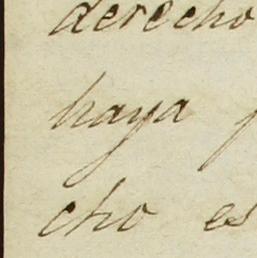 derecho
haya
cho es